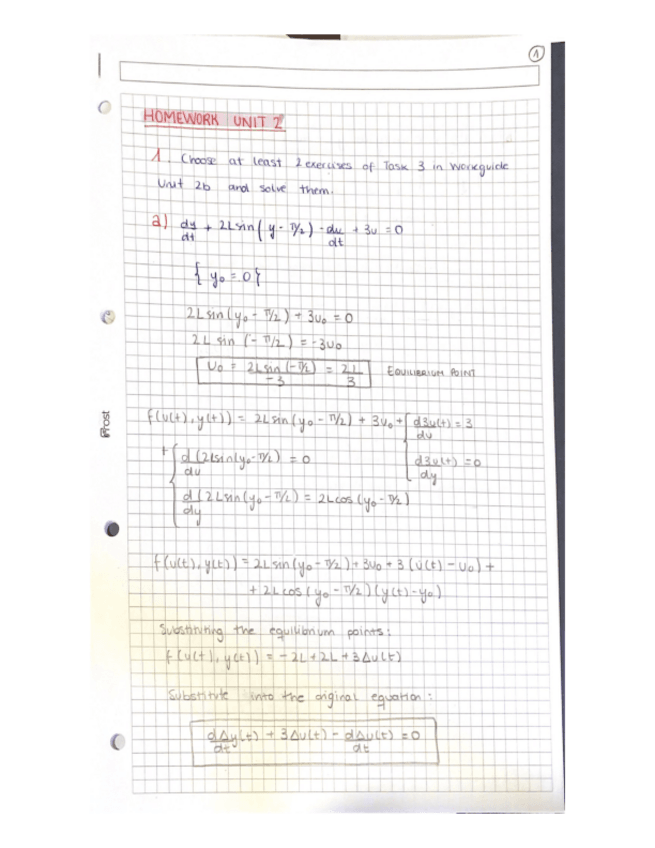 1
HOMEWORK UNIT 2
1. Choose at least 2 exercises of Task 3 in Workguide
Unit 2b and solve them.
a) dy/dt + 2L sin(y - π/2) - du/dt + 3u = 0
{ y₀ = 0 }
2L sin(y₀ - π/2) + 3u₀ = 0
2L sin (-π/2) = -3u₀
U₀ = 2L sin(-π/2)/-3 = 2L/3 EQUILIBRIUM POINT
f(u(t), y(t)) = 2L sin(y₀ - π/2) + 3u₀ + { d3u(t)/du = 3
d3u(t)/dy = 0
+ { d(2L sin(y₀ - π/2)/du = 0
d(2L sin(y₀ - π/2)/dy = 2L cos(y₀ - π/2)
f(u(t), y(t)) = 2L sin(y₀ - π/2) + 3u₀ + 3(u(t) - u₀) +
+ 2L cos(y₀ - π/2)(y(t) - y₀)
Substituting the equilibrium points:
f(u(t), y(t)) = -2L + 2L + 3Δu(t)
Substitute into the original equation:
dΔy(t)/dt + 3Δu(t) - dΔu(t)/dt = 0